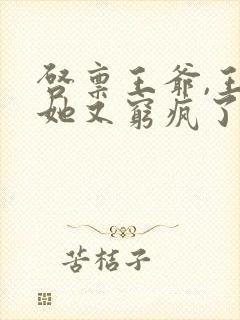 启禀王爷,王
她又穷疯了
苦桔子